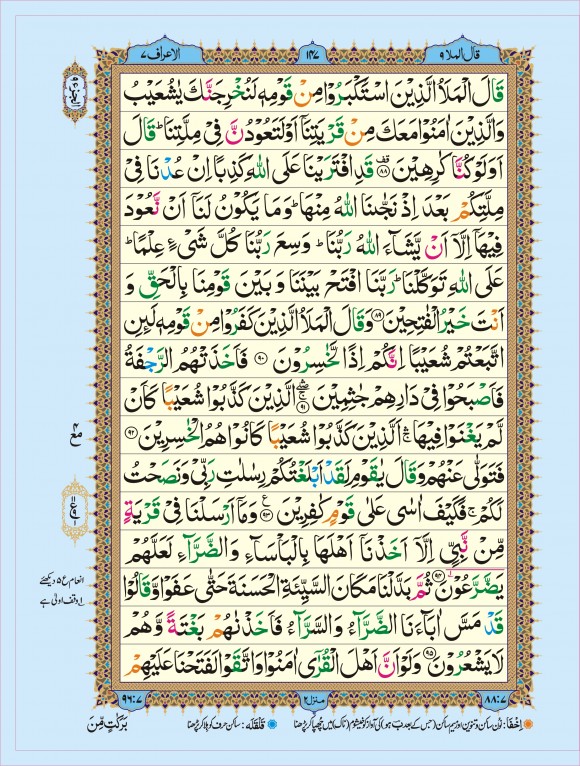 قال الملا ٩
١٤٧
الاعراف ٧
قَالَ الْمَلَاُ الَّذِيْنَ اسْتَكْبَرُوْا مِنْ قَوْمِهٖ لَنُخْرِجَنَّكَ يٰشُعَيْبُ
وَالَّذِيْنَ اٰمَنُوْا مَعَكَ مِنْ قَرْيَتِنَاۤ اَوْ لَتَعُوْدُنَّ فِيْ مِلَّتِنَا ؕ قَالَ
اَوَلَوْ كُنَّا كٰرِهِيْنَ ۟ قف ٨٨ قَدِ افْتَرَيْنَا عَلَى اللّٰهِ كَذِبًا اِنْ عُدْنَا فِيْ
مِلَّتِكُمْ بَعْدَ اِذْ نَجّٰىنَا اللّٰهُ مِنْهَا ؕ وَمَا يَكُوْنُ لَنَاۤ اَنْ نَّعُوْدَ
فِيْهَاۤ اِلَّاۤ اَنْ يَّشَآءَ اللّٰهُ رَبُّنَا ؕ وَسِعَ رَبُّنَا كُلَّ شَيْءٍ عِلْمًا ؕ
عَلَى اللّٰهِ تَوَكَّلْنَا ؕ رَبَّنَا افْتَحْ بَيْنَنَا وَبَيْنَ قَوْمِنَا بِالْحَقِّ وَ
اَنْتَ خَيْرُ الْفٰتِحِيْنَ ٨٩ وَقَالَ الْمَلَاُ الَّذِيْنَ كَفَرُوْا مِنْ قَوْمِهٖ لَىِٕنِ
اتَّبَعْتُمْ شُعَيْبًا اِنَّكُمْ اِذًا لَّخٰسِرُوْنَ ٩٠ فَاَخَذَتْهُمُ الرَّجْفَةُ
فَاَصْبَحُوْا فِيْ دَارِهِمْ جٰثِمِيْنَ ٩١ الَّذِيْنَ كَذَّبُوْا شُعَيْبًا كَاَنْ
لَّمْ يَغْنَوْا فِيْهَا ۛۚ اَلَّذِيْنَ كَذَّبُوْا شُعَيْبًا كَانُوْا هُمُ الْخٰسِرِيْنَ ٩٢
فَتَوَلّٰى عَنْهُمْ وَقَالَ يٰقَوْمِ لَقَدْ اَبْلَغْتُكُمْ رِسٰلٰتِ رَبِّيْ وَنَصَحْتُ
لَكُمْ ۚ فَكَيْفَ اٰسٰى عَلٰى قَوْمٍ كٰفِرِيْنَ ٩٣ ع وَمَاۤ اَرْسَلْنَا فِيْ قَرْيَةٍ
مِّنْ نَّبِيٍّ اِلَّاۤ اَخَذْنَاۤ اَهْلَهَا بِالْبَاْسَآءِ وَالضَّرَّآءِ لَعَلَّهُمْ
يَضَّرَّعُوْنَ ٩٤ ثُمَّ بَدَّلْنَا مَكَانَ السَّيِّئَةِ الْحَسَنَةَ حَتّٰى عَفَوْا وَّقَالُوْا
قَدْ مَسَّ اٰبَآءَنَا الضَّرَّآءُ وَالسَّرَّآءُ فَاَخَذْنٰهُمْ بَغْتَةً وَّهُمْ
لَا يَشْعُرُوْنَ ٩٥ وَلَوْ اَنَّ اَهْلَ الْقُرٰۤى اٰمَنُوْا وَاتَّقَوْا لَفَتَحْنَا عَلَيْهِمْ
مع ٤
انعام ع ٥ دیکھئے
٨٨:٧
منزل ٢
٩٦:٧
اِخفَا: نون ساکن و تنوین اور میم ساکن (جس کے بعد ب ہو) کی آواز کو خیشوم (ناک) میں چھپا کر پڑھنا
قَلقَلَه: ساکن حرف کو ہلا کر پڑھنا
بَرَكٰتٍ مِّنَ